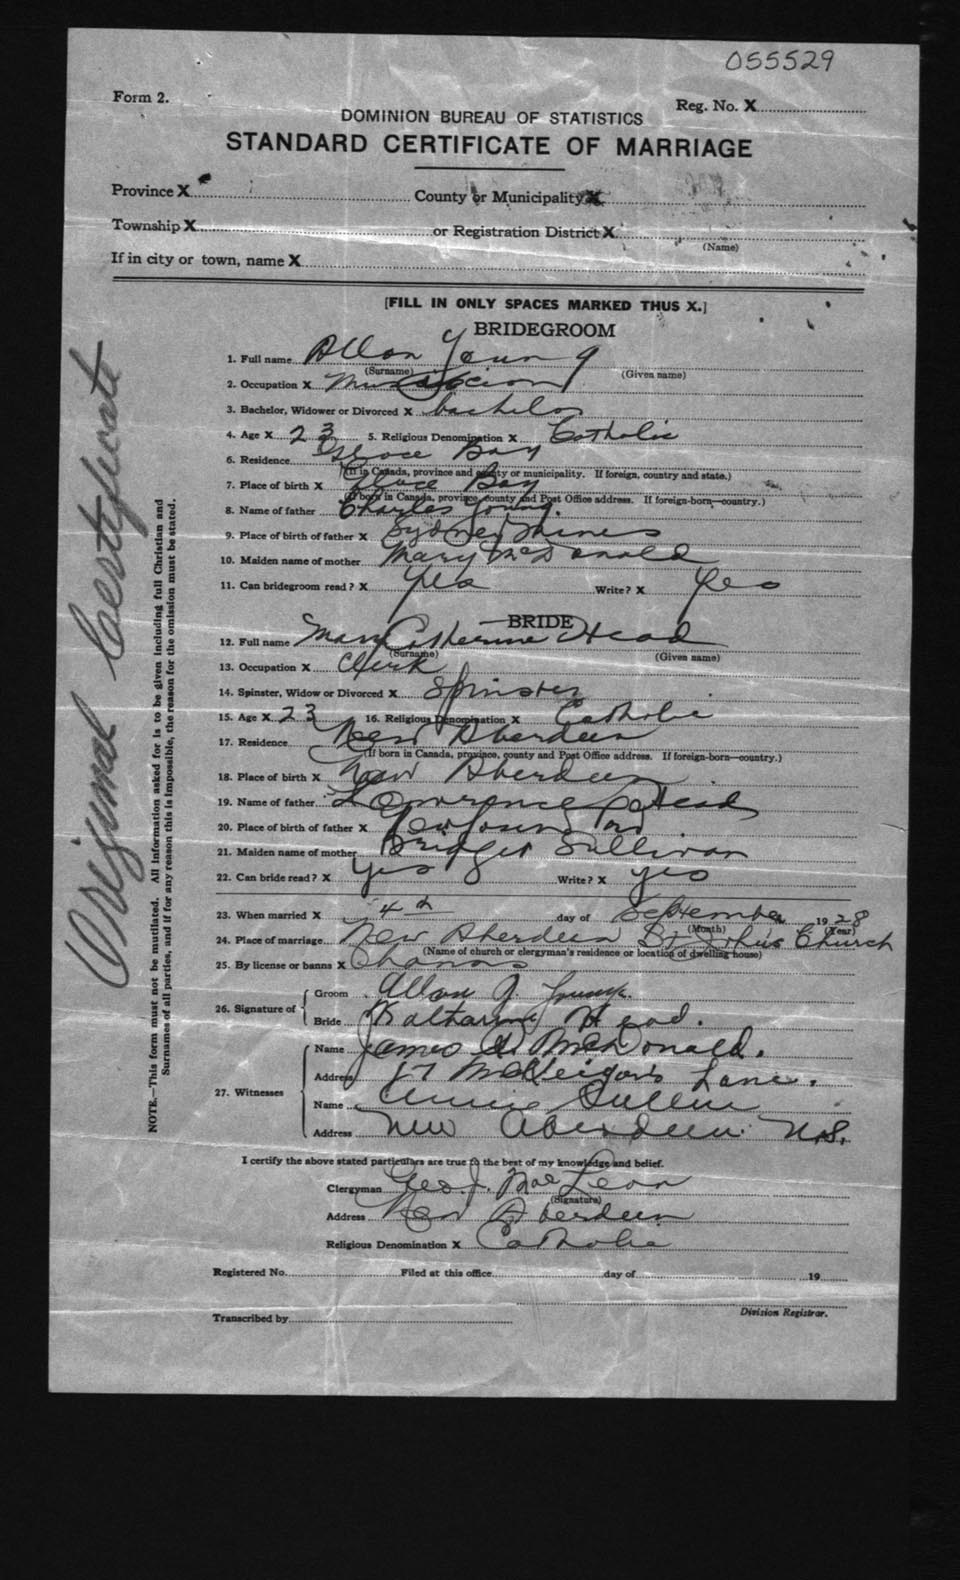 055529
Form 2.
Reg. No. X
DOMINION BUREAU OF STATISTICS
STANDARD CERTIFICATE OF MARRIAGE
Province X County or Municipality X
Township X or Registration District X
(Name)
If in city or town, name X
[FILL IN ONLY SPACES MARKED THUS X.]
BRIDEGROOM
1. Full name Allan Young
(Surname) (Given name)
2. Occupation X
3. Bachelor, Widower or Divorced X bachelor
4. Age X 23 5. Religious Denomination X Catholic
6. Residence Glace Bay
(If in Canada, province and county or municipality. If foreign, country and state.)
7. Place of birth X Glace Bay
(If born in Canada, province, county and Post Office address. If foreign-born—country.)
8. Name of father Charles Young.
9. Place of birth of father X Sydney Mines
10. Maiden name of mother Mary McDonald
11. Can bridegroom read? X Yes Write? X Yes
BRIDE
12. Full name Mary Catherine Head
(Surname) (Given name)
13. Occupation X Clerk
14. Spinster, Widow or Divorced X Spinster
15. Age X 23 16. Religious Denomination X Catholic
17. Residence New Aberdeen
(If born in Canada, province, county and Post Office address. If foreign-born—country.)
18. Place of birth X New Aberdeen
19. Name of father Lawrence Head
20. Place of birth of father X
21. Maiden name of mother Bridget Sullivan
22. Can bride read? X yes Write? X yes
23. When married X 4th day of September 1928
(Month) (Year)
24. Place of marriage New Aberdeen St John's Church
(Name of church or clergyman's residence or location of dwelling house)
25. By license or banns X
26. Signature of
Groom Allan J Young.
Bride Katharine Head.
27. Witnesses
Name James A. McDonald.
Address 17 Lane.
Name Annie
Address New Aberdeen N.S.
I certify the above stated particulars are true to the best of my knowledge and belief.
Clergyman Geo. J. MacLean
(Signature)
Address New Aberdeen
Religious Denomination X Catholic
Registered No. Filed at this office day of 19
Division Registrar.
Transcribed by
Original Caertificate
NOTE.—This form must not be mutilated. All information asked for is to be given including full Christian and
Surnames of all parties, and if for any reason this is impossible, the reason for the omission must be stated.